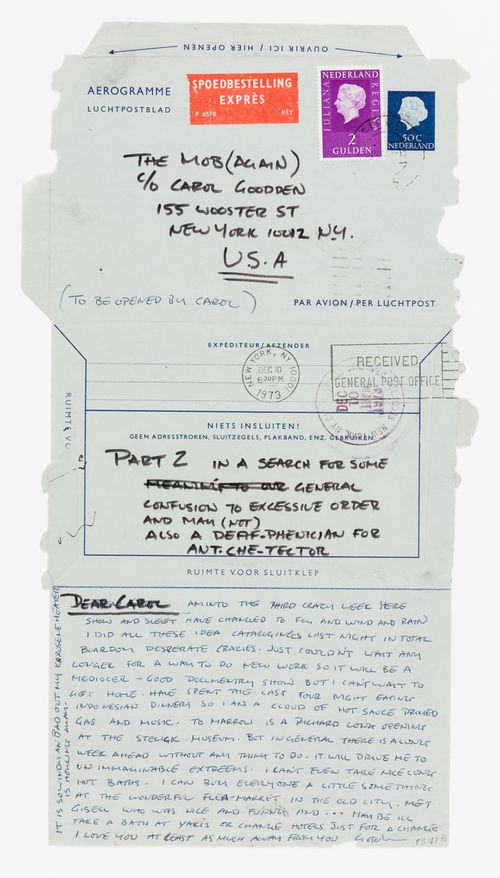 OUVRIR ICI / HIER OPENEN
AEROGRAMME
LUCHTPOSTBLAD
SPOEDBESTELLING
EXPRÈS
P 4678 PTT
NEDERLAND
JULIANA REGINA
2
GULDEN
50C
NEDERLAND
THE MOB (AGAIN)
C/O CAROL GOODDEN
155 WOOSTER ST.
NEW YORK 10012 N.Y.
U.S.A
(TO BE OPENED BY CAROL)
PAR AVION / PER LUCHTPOST
EXPÉDITEUR/AFZENDER
NEW YORK, NY 10001
DEC 10
630PM
1973
RECEIVED
GENERAL POST OFFICE
RUIMTE VO
NIETS INSLUITEN!
GEEN ADRESSTROKEN, SLUITZEGELS, PLAKBAND, ENZ. GEBRUIKEN.
PART 2 IN A SEARCH FOR SOME
MEANING TO OUR GENERAL
CONFUSION TO EXCESSIVE ORDER
AND MAY (NOT)
ALSO A DEAF-PHENICIAN FOR
ANT.CHE-TECTOR
RUIMTE VOOR SLUITKLEP
DEAR CAROL AM INTO THE THIRD CRAZY WEEK HERE
SHOW AND SLEET HAVE CHANGED TO FOG AND WIND AND RAIN
I DID ALL THESE IDEA CATALOGINGS LAST NIGHT IN TOTAL
BOARDOM DESPERATE CRAZIES. JUST COULDN'T WAIT ANY
LONGER FOR A WAY TO DO NEW WORK SO IT WILL BE A
MEDIOCER - GOOD DOCUMENTRY SHOW BUT I CAN'T WAIT TO
GET HOME. HAVE SPENT THE LAST FOUR NIGHT EATING
INDONESIAN DINNERS SO I AM A CLOUD OF HOT SAUCE PRIMED
GAS AND MUSIC. TO MARROW IS A RICHARD LONG OPENING
AT THE STEDLGK MUSEUM. BUT IN GENERAL THERE IS A LONG
WEEK AHEAD WITHOUT ANY THING TO DO. IT WILL DRIVE ME TO
UN IMMAGINABLE EXTREEMS. I CAN'T EVEN TAKE NICE LONG
HOT BATHS. I CAN BUY EVERYONE A LITTLE SOMETHING
AT THE WONDERFUL FLEA-MARKET IN THE OLD CITY. MET
GISELL WHO WAS NICE AND FUNNY AND ... MAYBE ILL
TAKE A BATH AT YARI'S OR CHANGE HOTELS JUST FOR A CHANGE
I LOVE YOU AT LEAST AS MUCH AWAY FROM YOU
IT IS SO WINDY IN BAD OUT MY KARESENE HEATER
IS HOWLING AGAIN.